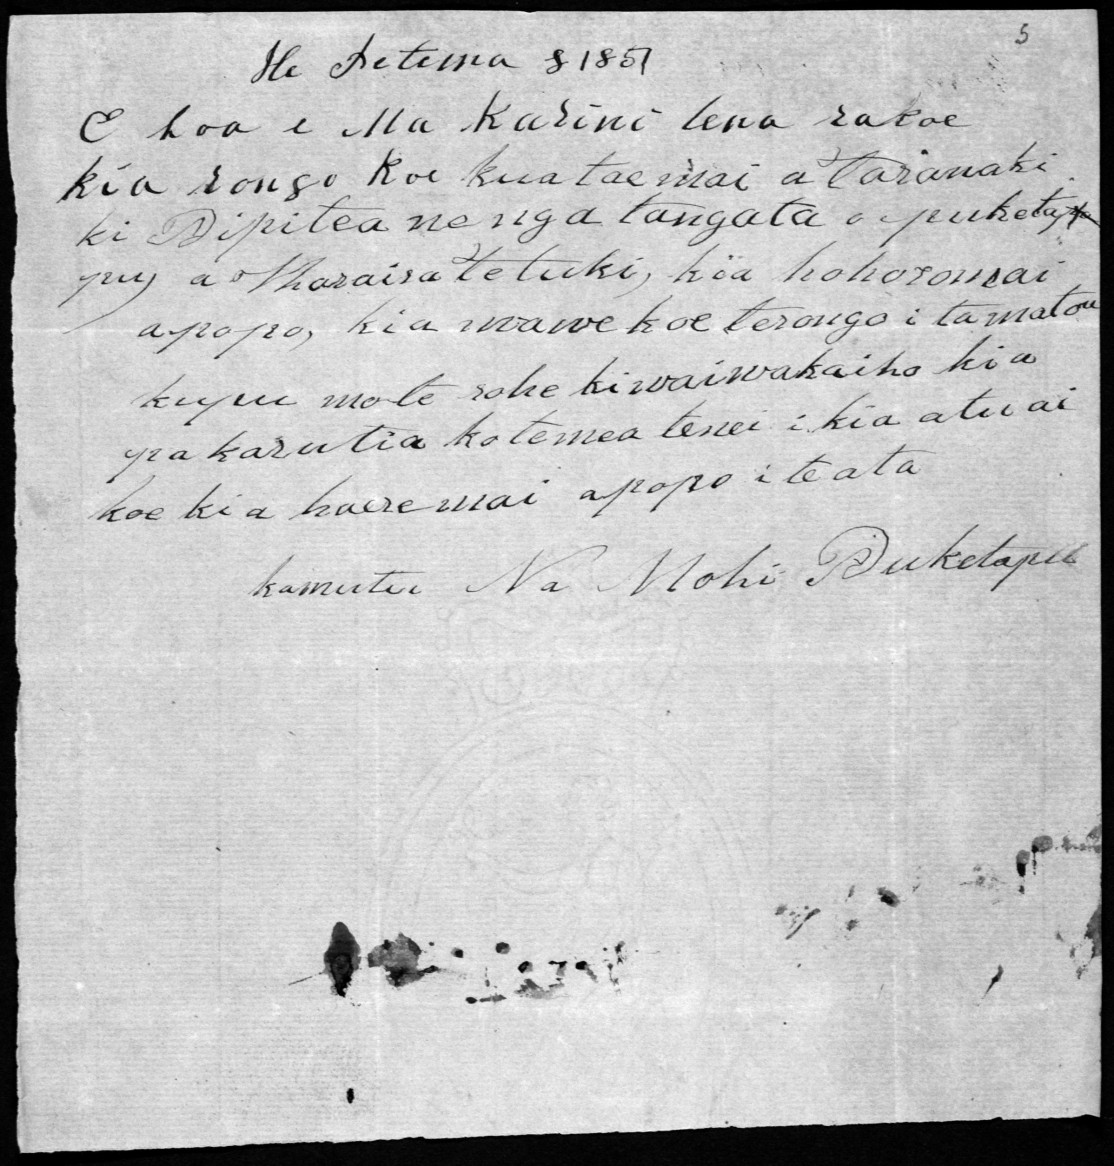 5
He Hetema 8 1851
E hoa e Ma Karini tena rakoe
kia rongo koe kua tae mai a Taranaki
ki Pipitea ne nga tangata o puketa
pu, a Wharaira te tuki, kia hohoromai
apopo, kia wawe koe terongo i ta matou
kupu mo te rohe kiwaiwakaiho kia
pakarutia kotemea tenei i kia atu ai
koe kia haere mai apopo i te ata
kamutu Na Mohi Puketapu